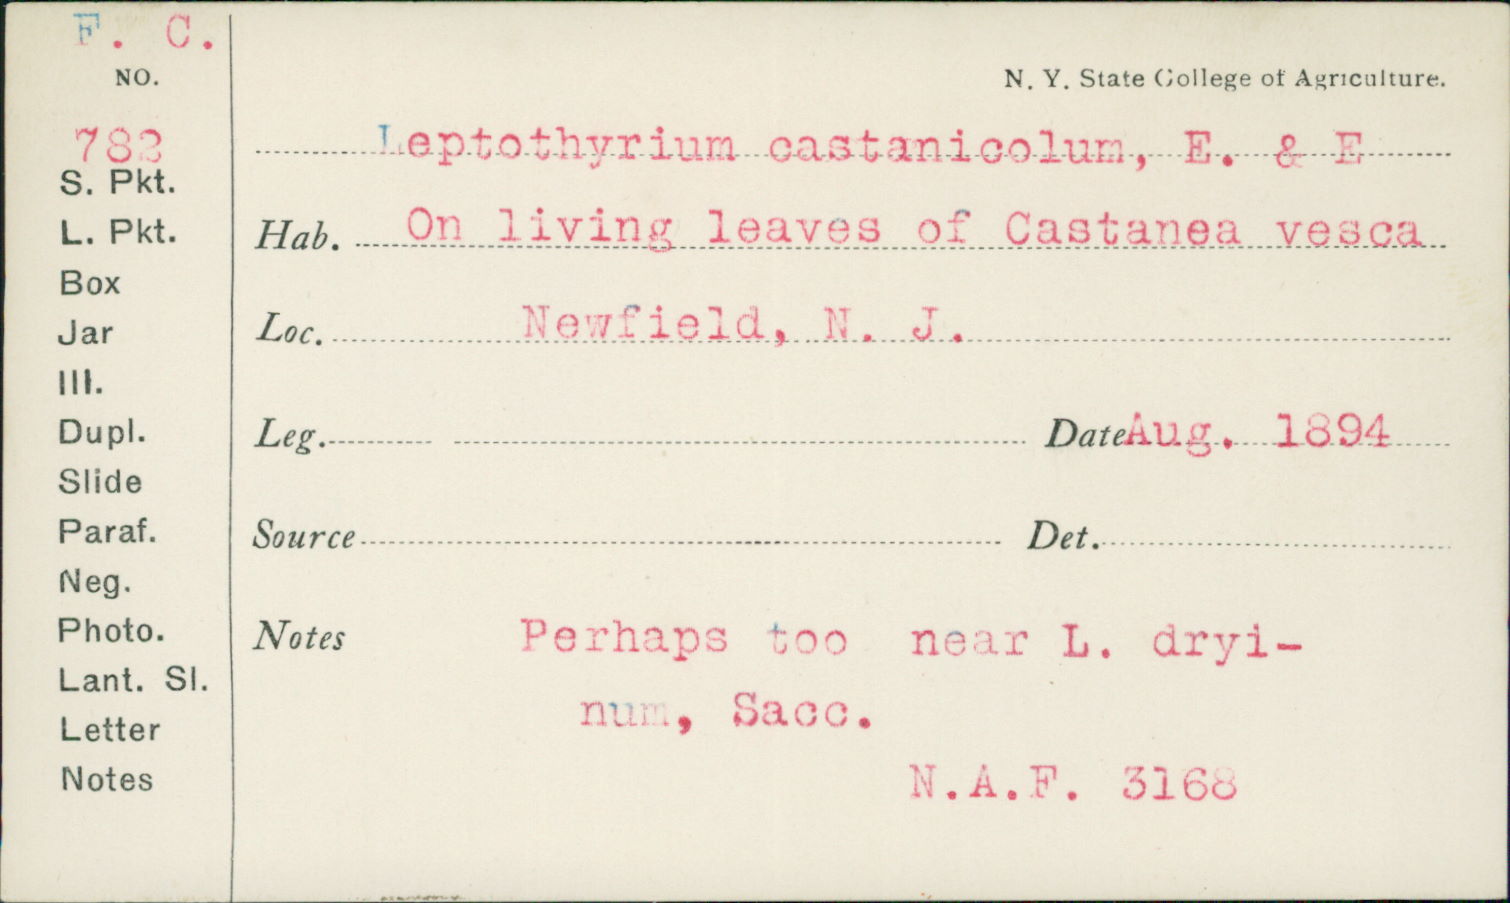 F. C.
NO.
N. Y. State College of Agriculture.
782
Leptothyrium castanicolum, E. & E
S. Pkt.
L. Pkt.
Hab. On living leaves of Castanea vesca
Box
Jar
Loc. Newfield, N. J.
Ill.
Dupl.
Leg. Date Aug. 1894
Slide
Paraf.
Source Det.
Neg.
Photo.
Notes Perhaps too near L. dryi-
Lant. Sl.
num, Sacc.
Letter
Notes
N.A.F. 3168